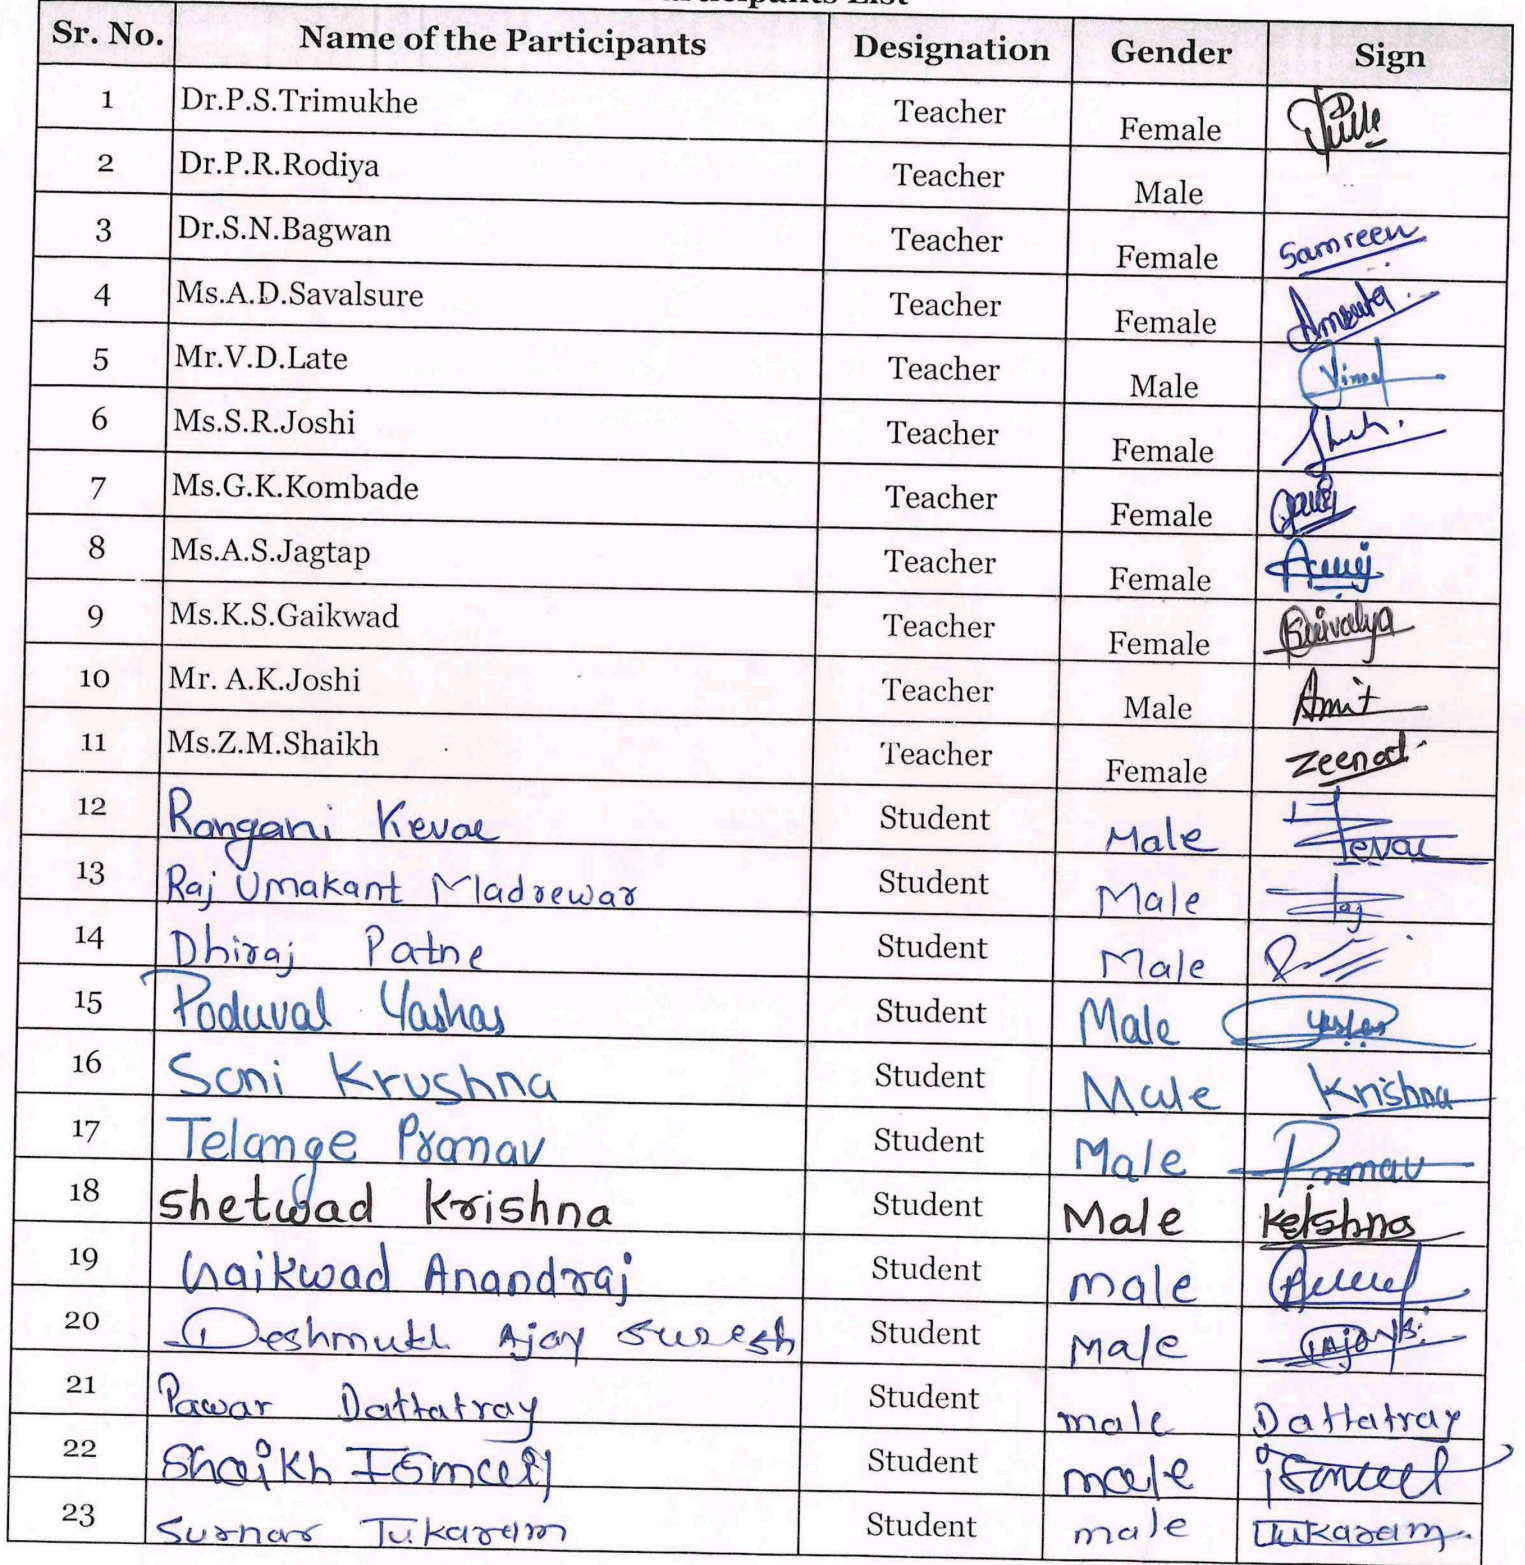 Participants List
Sr. No. Name of the Participants Designation Gender Sign
1 Dr.P.S.Trimukhe Teacher Female
2 Dr.P.R.Rodiya Teacher Male
3 Dr.S.N.Bagwan Teacher Female Samreen
4 Ms.A.D.Savalsure Teacher Female Amruta
5 Mr.V.D.Late Teacher Male
6 Ms.S.R.Joshi Teacher Female
7 Ms.G.K.Kombade Teacher Female
8 Ms.A.S.Jagtap Teacher Female
9 Ms.K.S.Gaikwad Teacher Female Kaivalya
10 Mr. A.K.Joshi Teacher Male Amit
11 Ms.Z.M.Shaikh Teacher Female Zeenat
12 Rangani Keval Student Male Keval
13 Raj Umakant Madrewar Student Male Raj
14 Dhiraj Patne Student Male
15 Poduval Yashas Student Male Yashas
16 Soni Krushna Student Male Krishna
17 Telange Pranav Student Male Pranav
18 Shetwad Krishna Student Male Krishna
19 Gaikwad Anandraj Student male
20 Deshmukh Ajay Suresh Student Male
21 Pawar Dattatray Student male Dattatray
22 Shaikh Ismail Student male ismail
23 Surnar Tukaram Student male Tukaram.